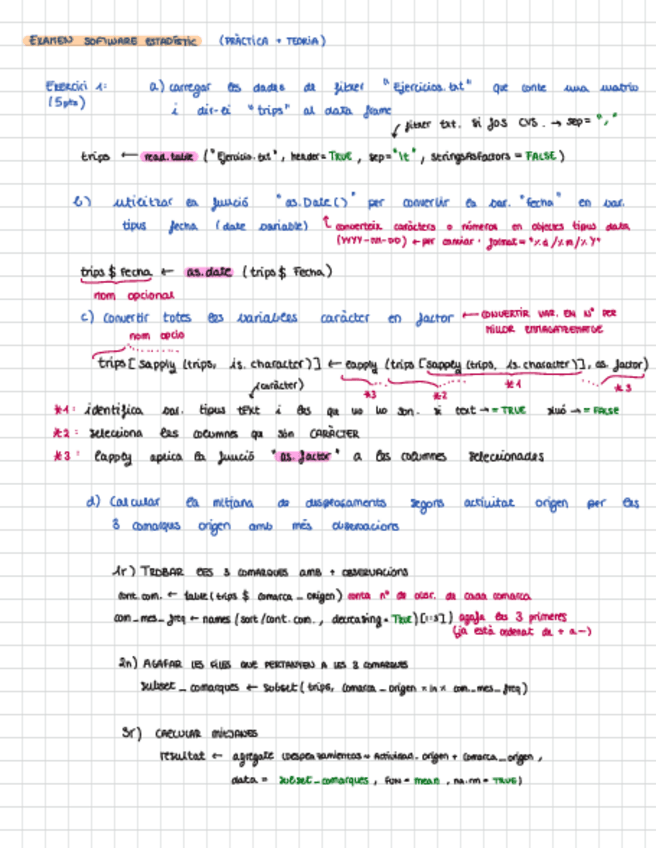 EXAMEN SOFTWARE ESTADÍSTIC (PRÀCTICA + TEORIA)
EXERCICI 1: a) carregar les dades de fitxer "Ejercicios.txt" que conte una matriu
(5pts) i dir-li "trips" al data frame
fitxer txt. si fos CVS. → sep = ","
trips ← read.table ("Ejercicio.txt", header = TRUE, sep = "\t", stringsAsFactors = FALSE)
b) utilitzar la funció "as.Date()" per convertir la var. "fecha" en var.
tipus fecha (date variable) ↑ converteix caràcters o números en objectes tipus data
(YYYY-MM-DD) ← per canviar: format = "%d/%m/%Y"
trips $ Fecha ← as.date (trips $ Fecha)
nom opcional
c) Convertir totes les variables caràcter en factor ← CONVERTIR VAR. EN Nº PER
nom opcio MILLOR EMMAGATZEMATGE
trips [ sapply (trips, is.character)] ← lapply (trips [sapply (trips, is.character)], as.factor)
(caràcter) *3 *2 *1 *3
*1: identifica var. tipus text i les que no ho son. si text → = TRUE sinó → = FALSE
*2: selecciona les columnes que són CARÀCTER
*3: lapply aplica la funció "as.factor" a les columnes seleccionades
d) Calcular la mitjana de desplaçaments segons activitat origen per les
3 comarques origen amb més observacions
1r) TROBAR LES 3 COMARQUES AMB + OBSERVACIONS
cont.com. ← table (trips $ comarca_origen) conta nº de obsr. de cada comarca
com_mes_freq ← names (sort (cont.com., decreasing = True) [1:3]) agafa les 3 primeres
(ja està ordenat de + a -)
2n) AGAFAR LES FILES QUE PERTANYEN A LES 3 COMARQUES
subset_comarques ← subset (trips, comarca_origen %in% com_mes_freq)
3r) CALCULAR MITJANES
resultat ← agregate (desplazamientos ~ Actividad.origen + comarca_origen,
data = subset_comarques, FUN = mean, na.rm = TRUE)